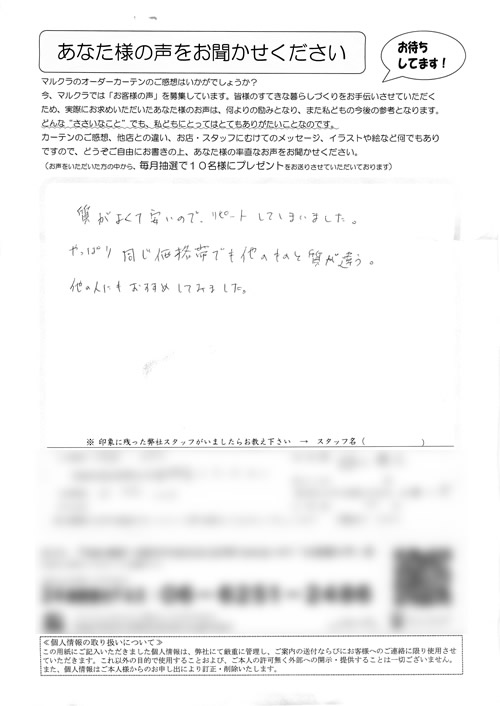 あなた様の声をお聞かせください
お待ち
してます！
マルクラのオーダーカーテンのご感想はいかがでしょうか？
今、マルクラでは「お客様の声」を募集しています。皆様のすてきな暮らしづくりをお手伝いさせていただく
ため、実際にお求めいただいたあなた様のお声は、何よりの励みとなり、また私どもの今後の参考となります。
どんな“ささいなこと”でも、私どもにとってはとてもありがたいことなのです。
カーテンのご感想、他店との違い、お店・スタッフにむけてのメッセージ、イラストや絵など何でもあり
ですので、どうぞご自由にお書きの上、あなた様の率直なお声をお聞かせください。
（お声をいただいた方の中から、毎月抽選で１０名様にプレゼントをお送りさせていただいております）
質がよくて安いので、リピートしてしまいました。
やっぱり同じ価格帯でも他のものと質が違う。
他の人にもおすすめしてみました。
※ 印象に残った弊社スタッフがいましたらお教え下さい → スタッフ名（　　　　　　）
06-6251-2486
≪個人情報の取り扱いについて≫
この用紙にご記入いただきました個人情報は、弊社にて厳重に管理し、ご案内の送付ならびにお客様へのご連絡に限り使用させ
ていただきます。これ以外の目的で使用することおよび、ご本人の許可無く外部への開示・提供することは一切ございません。
また、個人情報はご本人様からのお申し出により訂正・削除いたします。